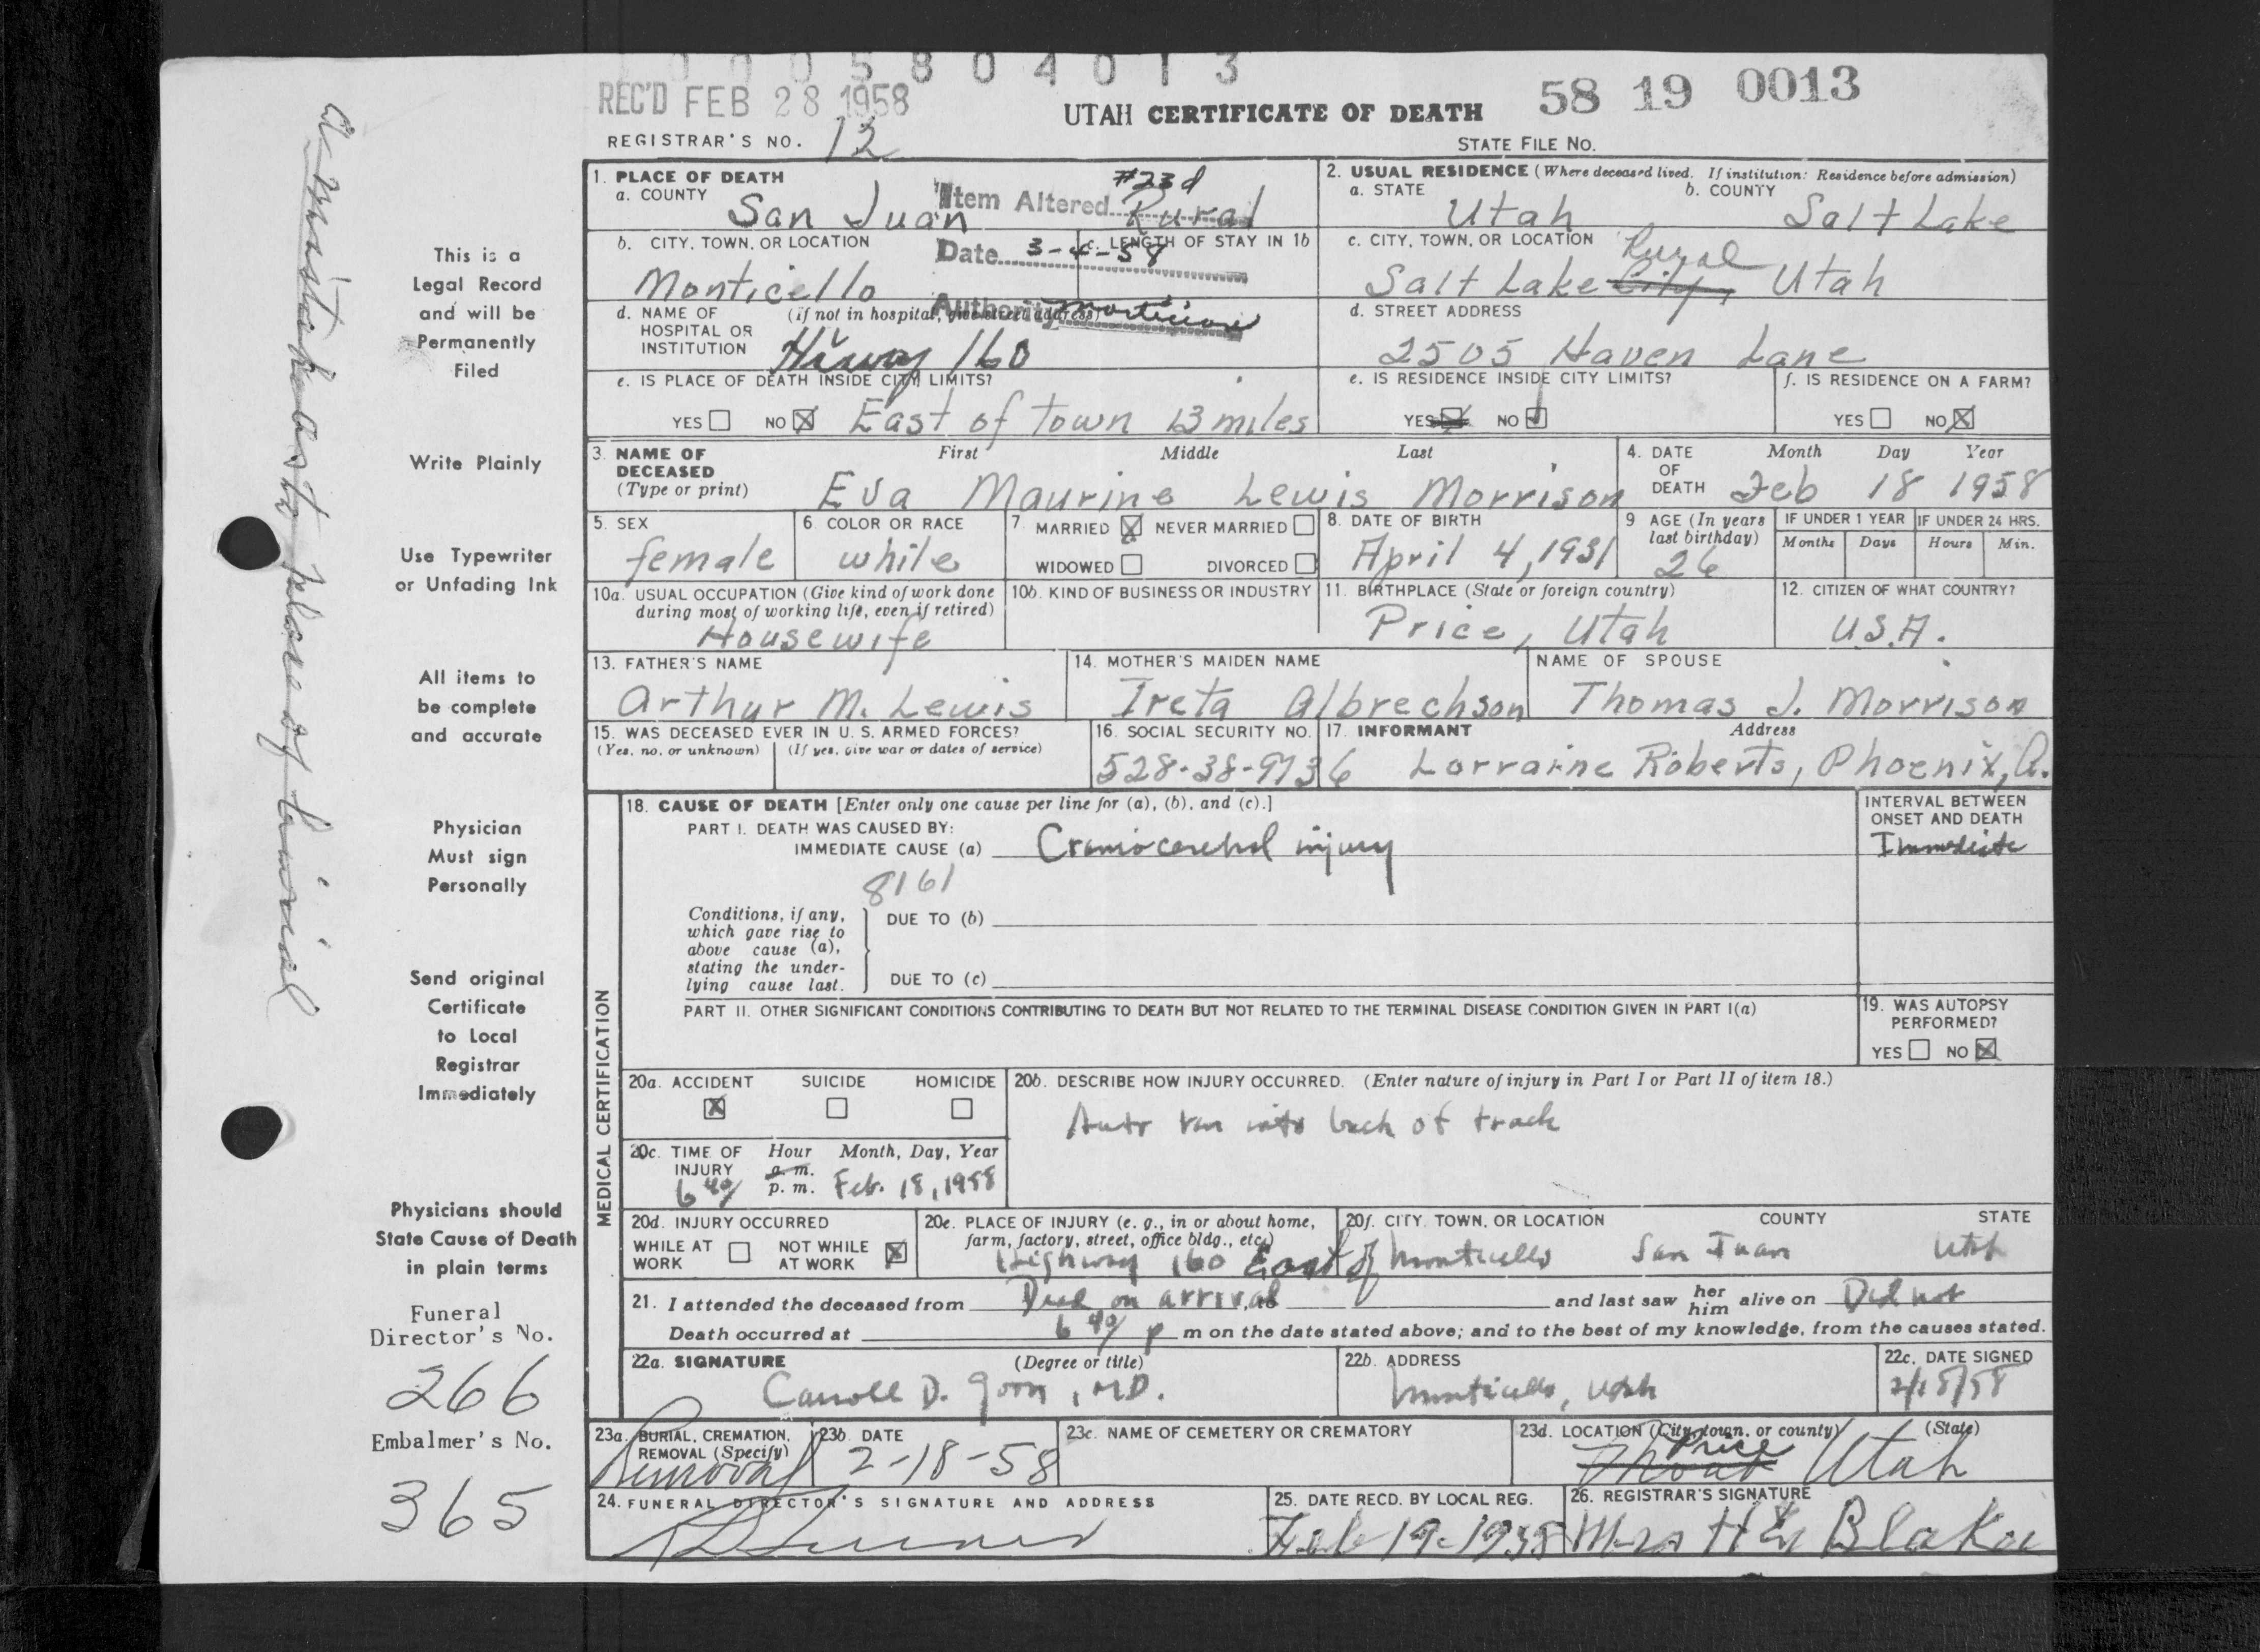 0 0 0 5 8 0 4 0 1 3
REC'D FEB 28 1958
58 19 0013
UTAH CERTIFICATE OF DEATH
REGISTRAR'S NO. 12
STATE FILE NO.
1. PLACE OF DEATH
a. COUNTY San Juan
Item Altered #23d Rural
Date 3-4-58
Authority Mortician
2. USUAL RESIDENCE (Where deceased lived. If institution: Residence before admission)
a. STATE Utah b. COUNTY Salt Lake
b. CITY, TOWN, OR LOCATION Monticello
c. LENGTH OF STAY IN 1b
c. CITY, TOWN, OR LOCATION Salt Lake City, Rural Utah
d. NAME OF HOSPITAL OR INSTITUTION (if not in hospital, give street address) Hiway 160
d. STREET ADDRESS 2505 Haven Lane
e. IS PLACE OF DEATH INSIDE CITY LIMITS?
YES NO X East of town 13 miles
e. IS RESIDENCE INSIDE CITY LIMITS?
YES NO
f. IS RESIDENCE ON A FARM?
YES NO X
3. NAME OF DECEASED (Type or print) First Middle Last
Eva Maurine Lewis Morrison
4. DATE OF DEATH Month Day Year
Feb 18 1958
5. SEX female
6. COLOR OR RACE white
7. MARRIED X NEVER MARRIED
WIDOWED DIVORCED
8. DATE OF BIRTH April 4, 1931
9 AGE (In years last birthday) 26
IF UNDER 1 YEAR Months Days
IF UNDER 24 HRS. Hours Min.
10a. USUAL OCCUPATION (Give kind of work done during most of working life, even if retired)
Housewife
10b. KIND OF BUSINESS OR INDUSTRY
11. BIRTHPLACE (State or foreign country)
Price, Utah
12. CITIZEN OF WHAT COUNTRY?
U.S.A.
13. FATHER'S NAME Arthur M. Lewis
14. MOTHER'S MAIDEN NAME Ireta Albrechson
NAME OF SPOUSE Thomas J. Morrison
15. WAS DECEASED EVER IN U. S. ARMED FORCES?
(Yes, no, or unknown) (If yes, give war or dates of service)
16. SOCIAL SECURITY NO. 528-38-9736
17. INFORMANT Address
Lorraine Roberts, Phoenix, A.
MEDICAL CERTIFICATION
18. CAUSE OF DEATH [Enter only one cause per line for (a), (b), and (c).]
PART I. DEATH WAS CAUSED BY:
IMMEDIATE CAUSE (a) Craniocerebral injury
INTERVAL BETWEEN ONSET AND DEATH
Immediate
8161
Conditions, if any, which gave rise to above cause (a), stating the underlying cause last.
DUE TO (b)
DUE TO (c)
PART II. OTHER SIGNIFICANT CONDITIONS CONTRIBUTING TO DEATH BUT NOT RELATED TO THE TERMINAL DISEASE CONDITION GIVEN IN PART I(a)
19. WAS AUTOPSY PERFORMED?
YES NO X
20a. ACCIDENT X SUICIDE HOMICIDE
20b. DESCRIBE HOW INJURY OCCURRED. (Enter nature of injury in Part I or Part II of item 18.)
Auto ran into back of truck
20c. TIME OF INJURY Hour Month, Day, Year
a. m.
6 40 p. m. Feb. 18, 1958
20d. INJURY OCCURRED
WHILE AT WORK NOT WHILE AT WORK X
20e. PLACE OF INJURY (e. g., in or about home, farm, factory, street, office bldg., etc.)
Highway 160 East of
20f. CITY, TOWN, OR LOCATION COUNTY STATE
Monticello San Juan Utah
21. I attended the deceased from Dead on arrival and last saw her him alive on Did not
Death occurred at 6 40 p m on the date stated above; and to the best of my knowledge, from the causes stated.
22a. SIGNATURE (Degree or title)
Carroll D. Goon, MD.
22b. ADDRESS
Monticello, Utah
22c. DATE SIGNED
2/18/58
23a. BURIAL, CREMATION, REMOVAL (Specify)
Removal
23b. DATE
2-18-58
23c. NAME OF CEMETERY OR CREMATORY
23d. LOCATION (City, town, or county) (State)
Moab Price Utah
24. FUNERAL DIRECTOR'S SIGNATURE AND ADDRESS
25. DATE RECD. BY LOCAL REG.
Feb 19-1958
26. REGISTRAR'S SIGNATURE
Mrs H Blake
This is a
Legal Record
and will be
Permanently
Filed
Write Plainly
Use Typewriter
or Unfading Ink
All items to
be complete
and accurate
Physician
Must sign
Personally
Send original
Certificate
to Local
Registrar
Immediately
Physicians should
State Cause of Death
in plain terms
Funeral
Director's No.
266
Embalmer's No.
365
a mistake as to place of burial